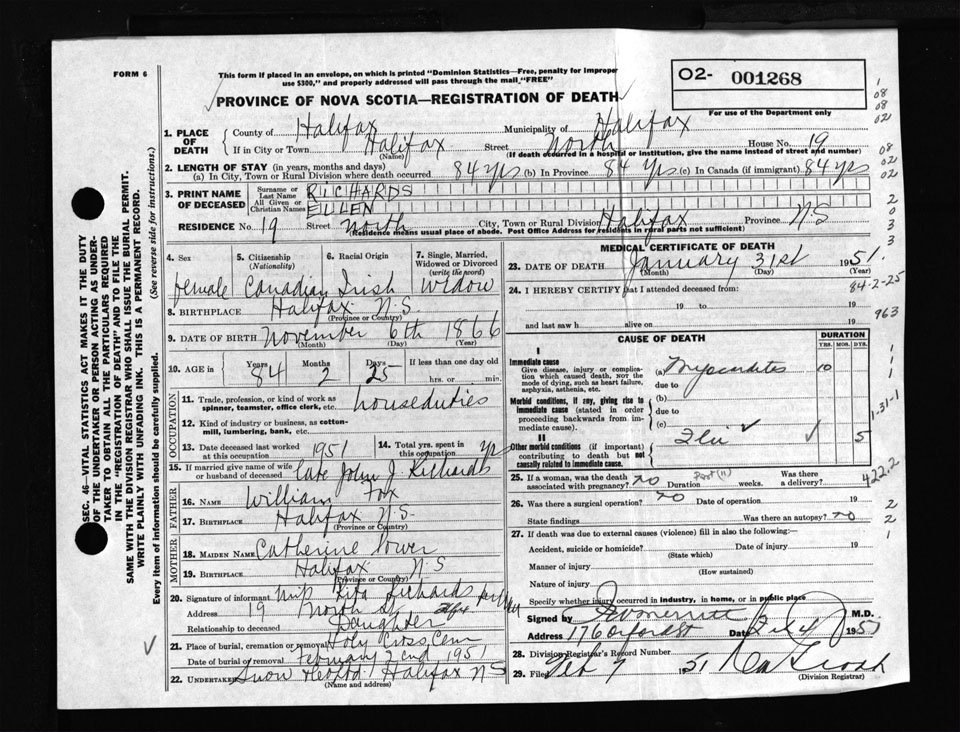 FORM 6
This form if placed in an envelope, on which is printed "Dominion Statistics—Free, penalty for improper
use $300," and properly addressed will pass through the mail "FREE"
PROVINCE OF NOVA SCOTIA—REGISTRATION OF DEATH
O2- 001268
For use of the Department only
1. PLACE OF DEATH
County of Halifax Municipality of Halifax
If in City or Town Halifax Street North House No. 19
(Name) (If death occurred in a hospital or institution, give the name instead of street and number)
2. LENGTH OF STAY (in years, months and days)
(a) In City, Town or Rural Division where death occurred 84 yrs (b) In Province 84 yrs (c) In Canada (if immigrant) 84 yrs
3. PRINT NAME OF DECEASED
Surname or Last Name RICHARDS
All Given or Christian Names EILLEN
RESIDENCE No. 19 Street North City, Town or Rural Division Halifax Province N.S
(Residence means usual place of abode. Post Office Address for residents in rural parts not sufficient)
4. Sex 5. Citizenship (Nationality) 6. Racial Origin 7. Single, Married, Widowed or Divorced (write the word)
female Canadian Irish Widow
8. BIRTHPLACE Halifax N.S.
(Province or Country)
9. DATE OF BIRTH November 6th 1866
(Month) (Day) (Year)
10. AGE in Years Months Days If less than one day old
84 2 25 hrs. or min.
OCCUPATION
11. Trade, profession, or kind of work as spinner, teamster, office clerk, etc. houseduties
12. Kind of industry or business, as cotton-mill, lumbering, bank, etc.
13. Date deceased last worked at this occupation 1951 14. Total yrs. spent in this occupation
15. If married give name of wife or husband of deceased Late John J. Richards
FATHER
16. NAME William Fox
17. BIRTHPLACE Halifax N.S.
(Province or Country)
MOTHER
18. MAIDEN NAME Catherine Power
19. BIRTHPLACE Halifax N S
(Province or Country)
20. Signature of informant Miss Rita Richards
Address 19 North St Hfx
Relationship to deceased Daughter
21. Place of burial, cremation or removal Holy Cross Cem
Date of burial or removal February 2nd 1951
22. Undertaker Snow Halifax N S
(Name and address)
MEDICAL CERTIFICATE OF DEATH
23. DATE OF DEATH January 31st 1951
(Month) (Day) (Year)
24. I HEREBY CERTIFY that I attended deceased from:
19 to 19
and last saw h alive on 19
CAUSE OF DEATH DURATION
YRS. MOS. DYS.
I
Immediate cause
Give disease, injury or complication which caused death, not the mode of dying, such as heart failure, asphyxia, asthenia, etc.
(a) Myocarditis 10
due to
Morbid conditions, if any, giving rise to immediate cause (stated in order proceeding backwards from immediate cause).
(b)
due to
(c)
II
Other morbid conditions (if important) contributing to death but not causally related to immediate cause.
Flu 5
25. If a woman, was the death associated with pregnancy? no Duration weeks. Was there a delivery?
26. Was there a surgical operation? no Date of operation 19
State findings Was there an autopsy? no
27. If death was due to external causes (violence) fill in also the following:
Accident, suicide or homicide? Date of injury 19
(State which)
Manner of injury
(How sustained)
Nature of injury
Specify whether injury occurred in industry, in home, or in public place
Signed by M.D.
Address 176 Oxford St Date Feb 4 1951
28. Division Registrar's Record Number
29. Filed Feb 7 1951
(Division Registrar)
SEC. 46—VITAL STATISTICS ACT MAKES IT THE DUTY
OF THE UNDERTAKER OR PERSON ACTING AS UNDER-
TAKER TO OBTAIN ALL THE PARTICULARS REQUIRED
IN THE "REGISTRATION OF DEATH" AND TO FILE THE
SAME WITH THE DIVISION REGISTRAR WHO SHALL ISSUE THE BURIAL PERMIT.
WRITE PLAINLY WITH UNFADING INK. THIS IS A PERMANENT RECORD.
Every item of information should be carefully supplied. (See reverse side for instructions.)
1
08
08
02
08
02
02
2
0
3
3
84-2-25
963
1
1
1
1-31-1
422.2
2
2
1